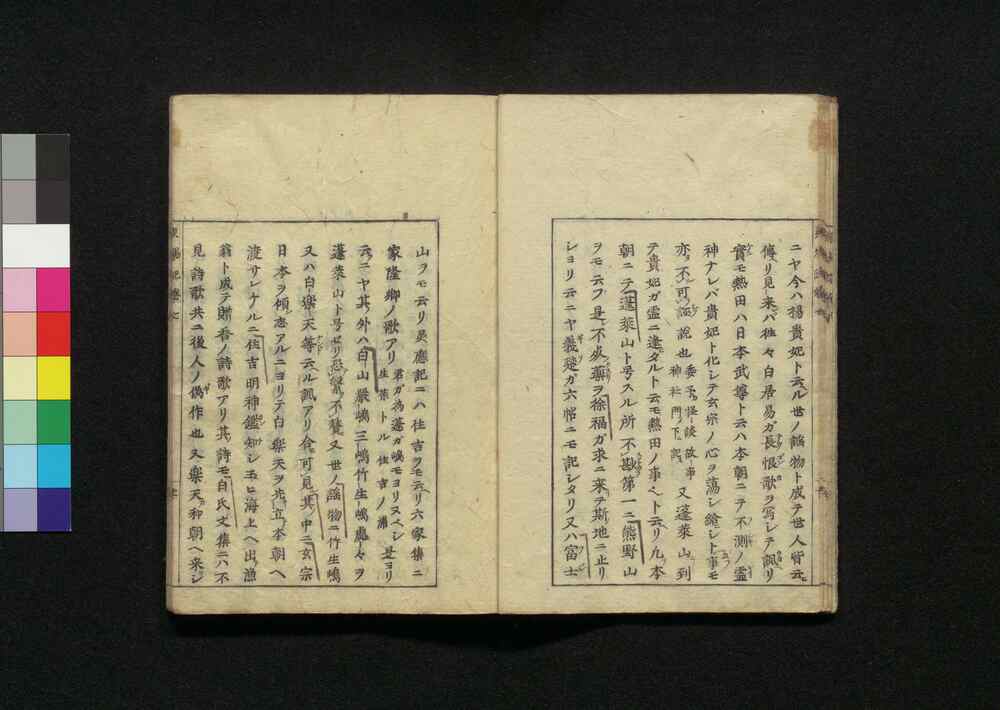 ニヤ今ハ楊貴妃ト云ル世ノ謡物ト成テ世人皆云
傳リ見来バ往々白居易ガ長恨歌ヲ写シテ諷リ
實モ熱田ハ日本武尊ト云ハ本朝ニテ不測ノ霊
神ナレバ貴妃ト化シテ玄宗ノ心ヲ蕩シ給シト事モ
亦不可証説也 委予怪談故事 神社門下ニ記 又蓬莱山ニ到
テ貴妃ガ霊ニ逢タルト云モ熱田ノ事ヘト云リ凡本
朝ニテ蓬莱山ト号スル所不尠第一ニ熊野山
ヲモ云フ是不死薬ヲ徐福ガ求ニ来テ斯地ニ止リ
シヨリ云ニヤ義楚ガ六帖ニモ記シタリ又ハ富士
山ヲモ云リ呉應記ニハ住吉ヲモ云リ六家集ニ
家隆卿ノ歌アリ 君ガ為蓬ガ嶋モヨリヌベシ 生薬トル住吉ノ浦 是ヨリ
云ニヤ其外ハ白山厳嶋三嶋竹生嶋處々ヲ
蓬莱山ト号セリ恐繁不贅又世ノ謡物ニ竹生嶋
又ハ白楽天等云ル諷アリ舎可見其中ニ玄宗
日本ヲ傾志アルニヨリテ白楽天ヲ先立本朝ヘ
渡サレケルニ住吉明神鑑知シ玉ヒ海上ヘ出漁
翁ト成テ贈答ノ詩歌アリ其詩モ白氏文集ニハ不
見詩歌共ニ後人ノ偽作也又楽天和朝ヘ来シ